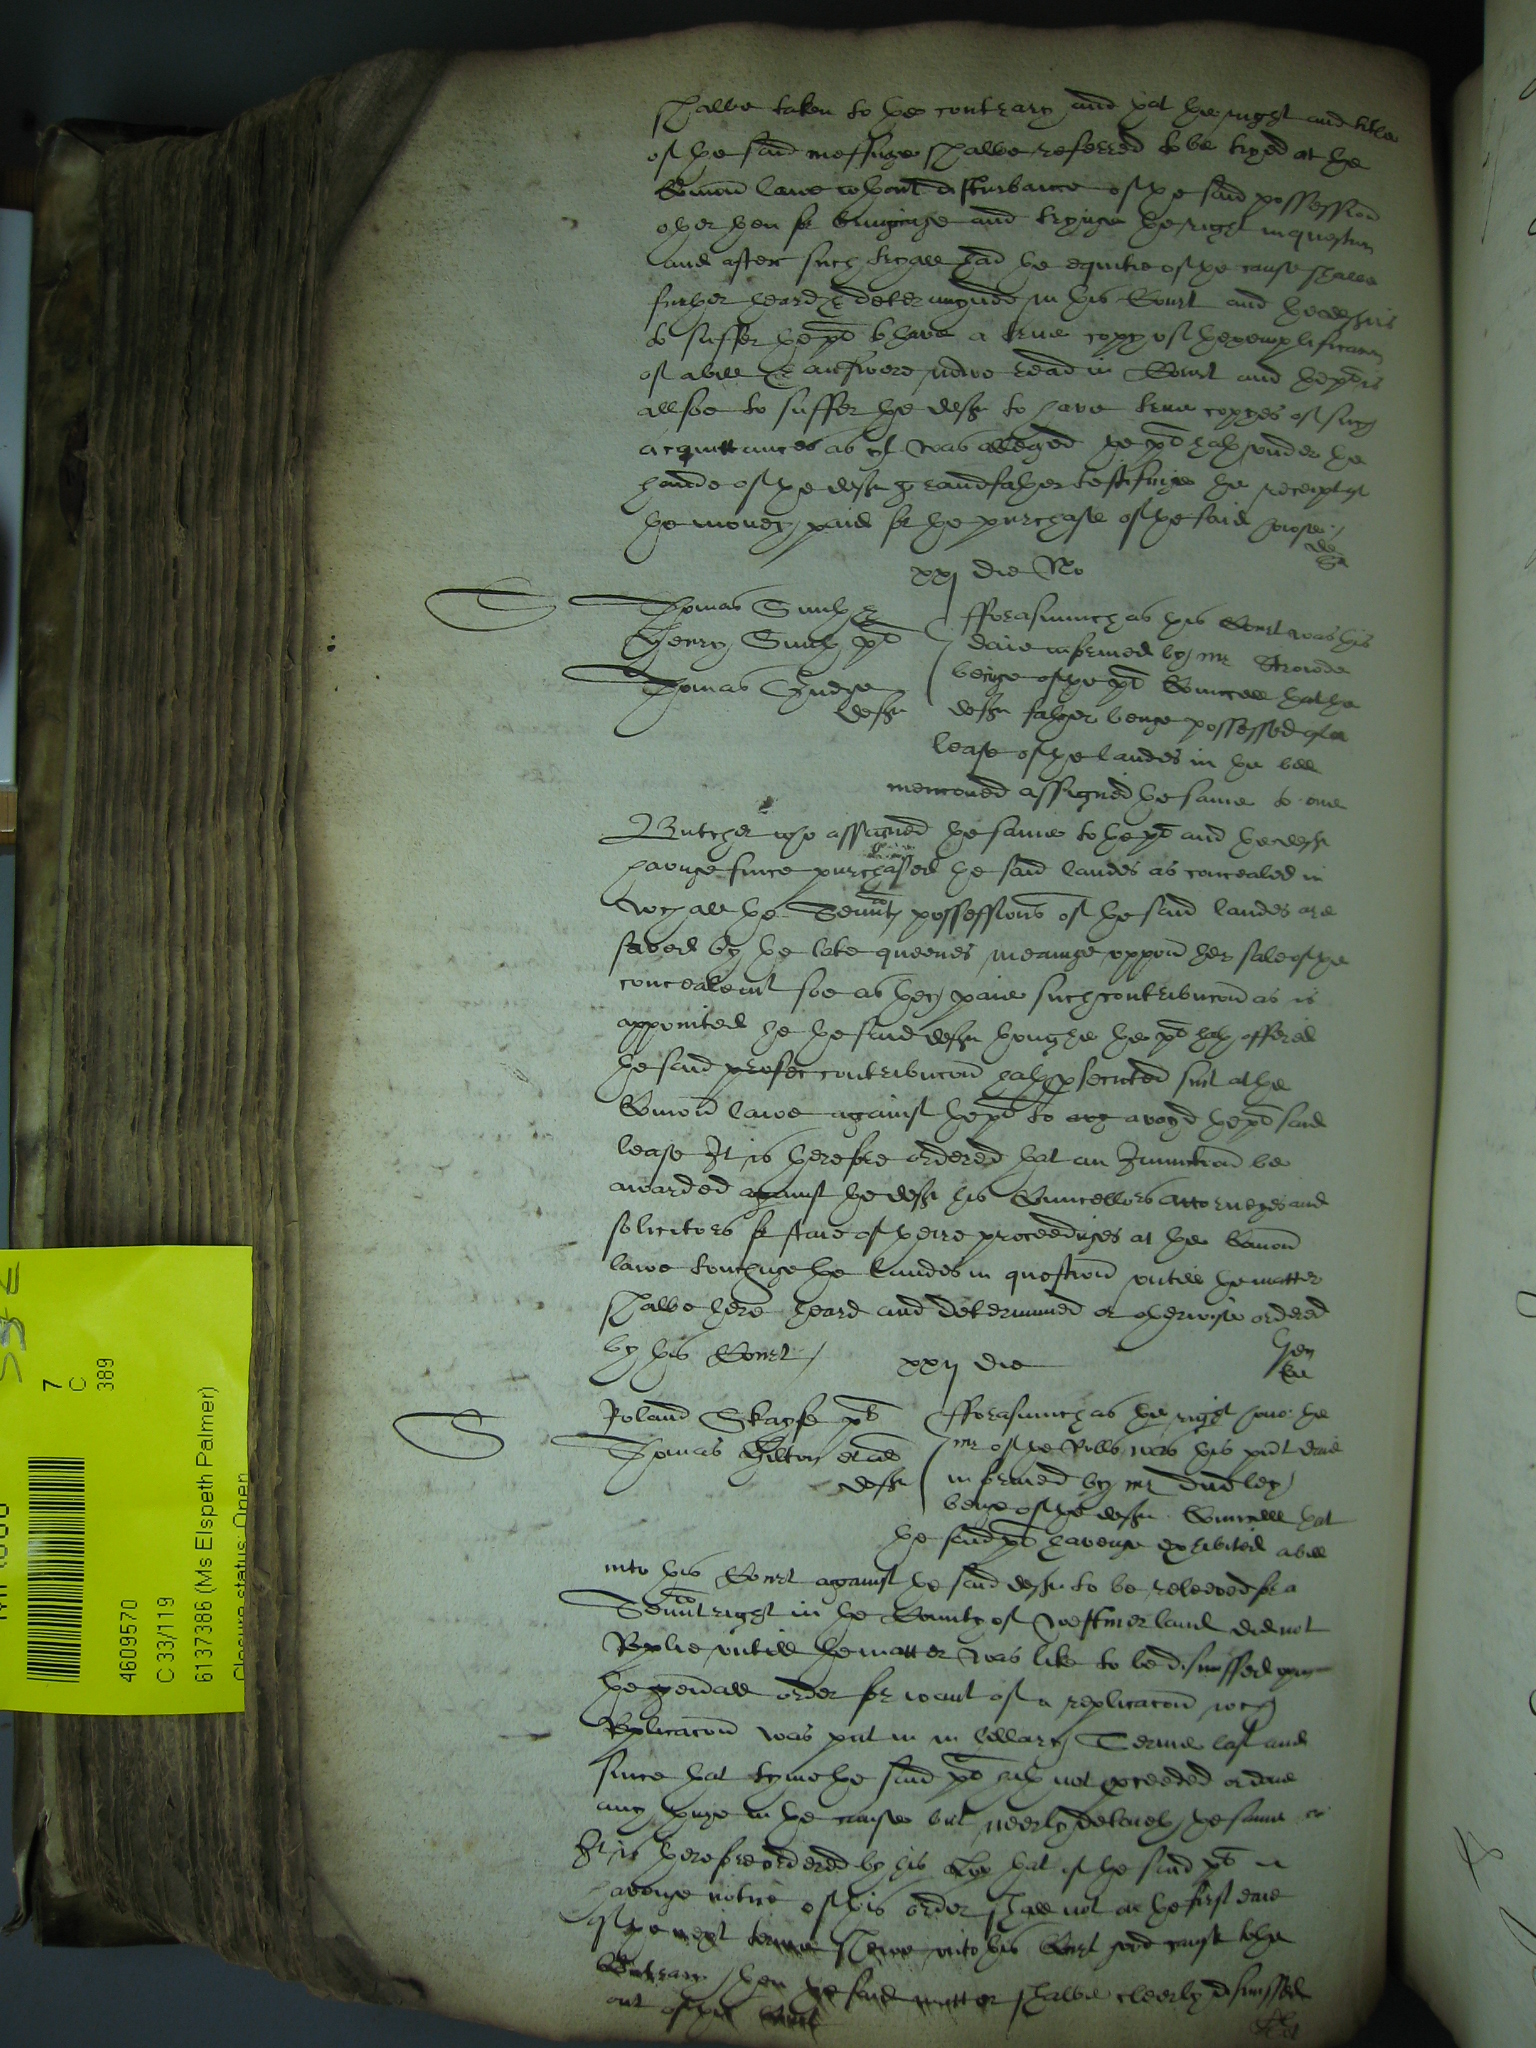 shalbe taken to the contrary and that the right and title
of the said messuage shalbe referred to be tryed at the
Comon lawe wthout disturbance of the said possession
other then for bringinge and tryinge the right in question
and after such tryall had the equitie of the cause shalbe
further heard & determyned in this Court and the deft is
to suffer the plt to have a true copy of thexemplificacon
of a bill & answere nowe read in Court and the plt is
allsoe to suffer the deft to have true copyes of such
acquittances as yt was alleged the plt hath under the
hande of the deftes grandfather testifyinge the receipt of
the money paid for the purchase of the said howse
xxj die No
Thomas Smyth &
Henry Smyth plts
Thomas Judge
deft
fforasmuch as this Court was this
daie informed by mr Strowde
beinge of the plts Councell that the
defts father beinge possessed of a
lease of the landes in the bill
mencioned assigned the same to one
Butcher who assigned the same to the plt and the deft
havinge since purchassed the said landes as concealed in
wch all the Tenntes possessions of the said landes are
saved by the late queenes meaninge uppon her sale of the
concealemt soe as they paie such contribucon as is
appointed he the said deft though the plt hath offered
the said contribucon hath psecuted suit at the
Comon lawe against the plt to avoyd the plts said
lease It is therefore ordered that an Iniunction be
awarded against the deft his Councellors Attorneyes and
solicitors for staie of there proceedinges at the Comon
lawe touchinge the landes in question untill the matter
shalbe here heard and determined or otherwise ordered
by this Court
xxij die
Roland Skayfe plt
Thomas Hilton et al
defts
fforasmuch as the right hono: the
mr of the Rolls was this pnt daie
informed by mr dudley
beinge of the defts Councell that
the said plt havinge exhibited a bill
into this Court against the said defts to be releeved for a
Tennt right in the County of Westmerland did not
Replie untill the matter was like to be dismissed upon
the genall order for want of a replicacon wch
Replicacon was put in in hillary Terme last and
since that tyme the said plt hath not pceeded or done
any thinge in the cause but meerly delaieth the same
It is therefore ordered by his that if the said plt
havinge notice of this order shall not at the first daie
of the next terme shewe unto this Court good cause to the
Contrary then the said matter shalbe cleerly dismissed
out of this Court
7
C
389
4609570
C 33/119
6137386 (Ms Elspeth Palmer)
Closure status: Open